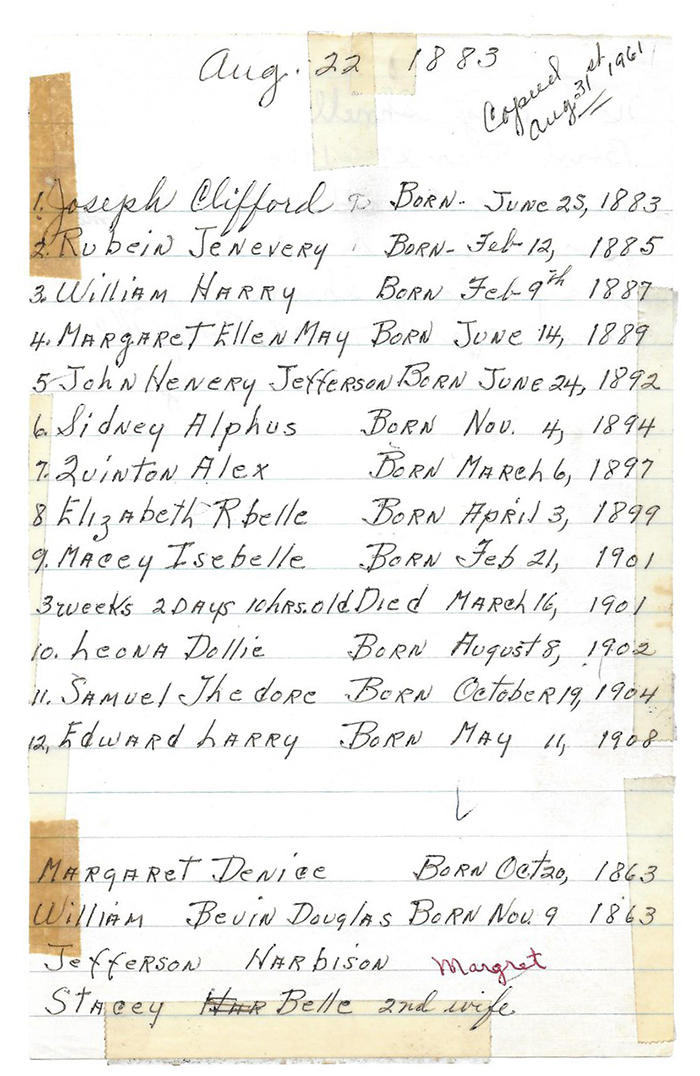 Aug. 22 1883
Copied
Aug 31st, 1961
1. Joseph Clifford Born- June 25, 1883
2. Rubein Jenevery Born- Feb 12, 1885
3. William Harry Born Feb 9th 1887
4. Margaret Ellen May Born June 14, 1889
5 John Henery Jefferson Born June 24, 1892
6. Sidney Alphus Born Nov. 4, 1894
7. Quinton Alex Born March 6, 1897
8 Elizabeth Rbelle Born April 3, 1899
9. Macey Isebelle Born Feb 21, 1901
3 weeks 2 Days 10 hrs. old Died March 16, 1901
10. Leona Dollie Born August 8, 1902
11. Samuel Thedore Born October 19, 1904
12, Edward Larry Born May 11, 1908
Margaret Denice Born Oct 20, 1863
William Bevin Douglas Born Nov. 9 1863
Jefferson Harbison Margret
Stacey Har Belle 2nd wife